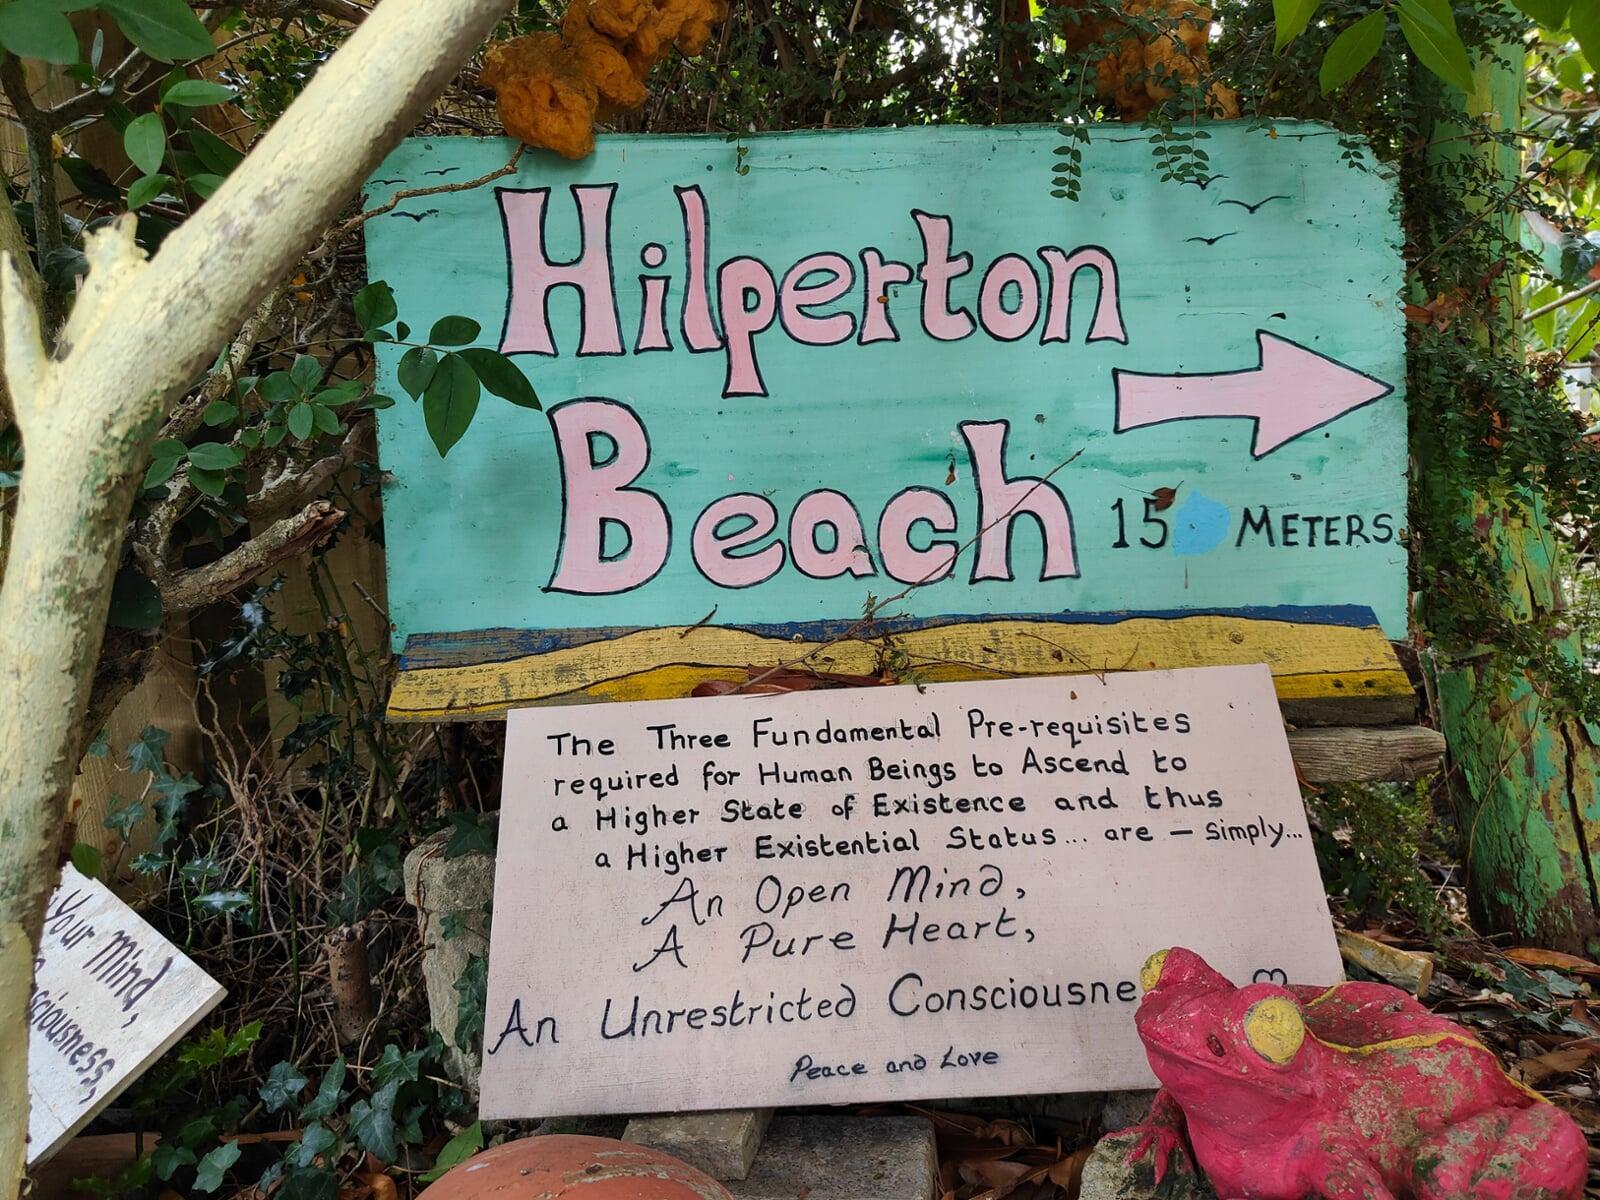 Hilperton
Beach
15 METERS
The Three Fundamental Pre-requisites
required for Human Beings to Ascend to
a Higher State of Existence and thus
a Higher Existential Status... are — simply...
An Open Mind,
A Pure Heart,
An Unrestricted Consciousne
Peace and Love
Your Mind,
sciousness,